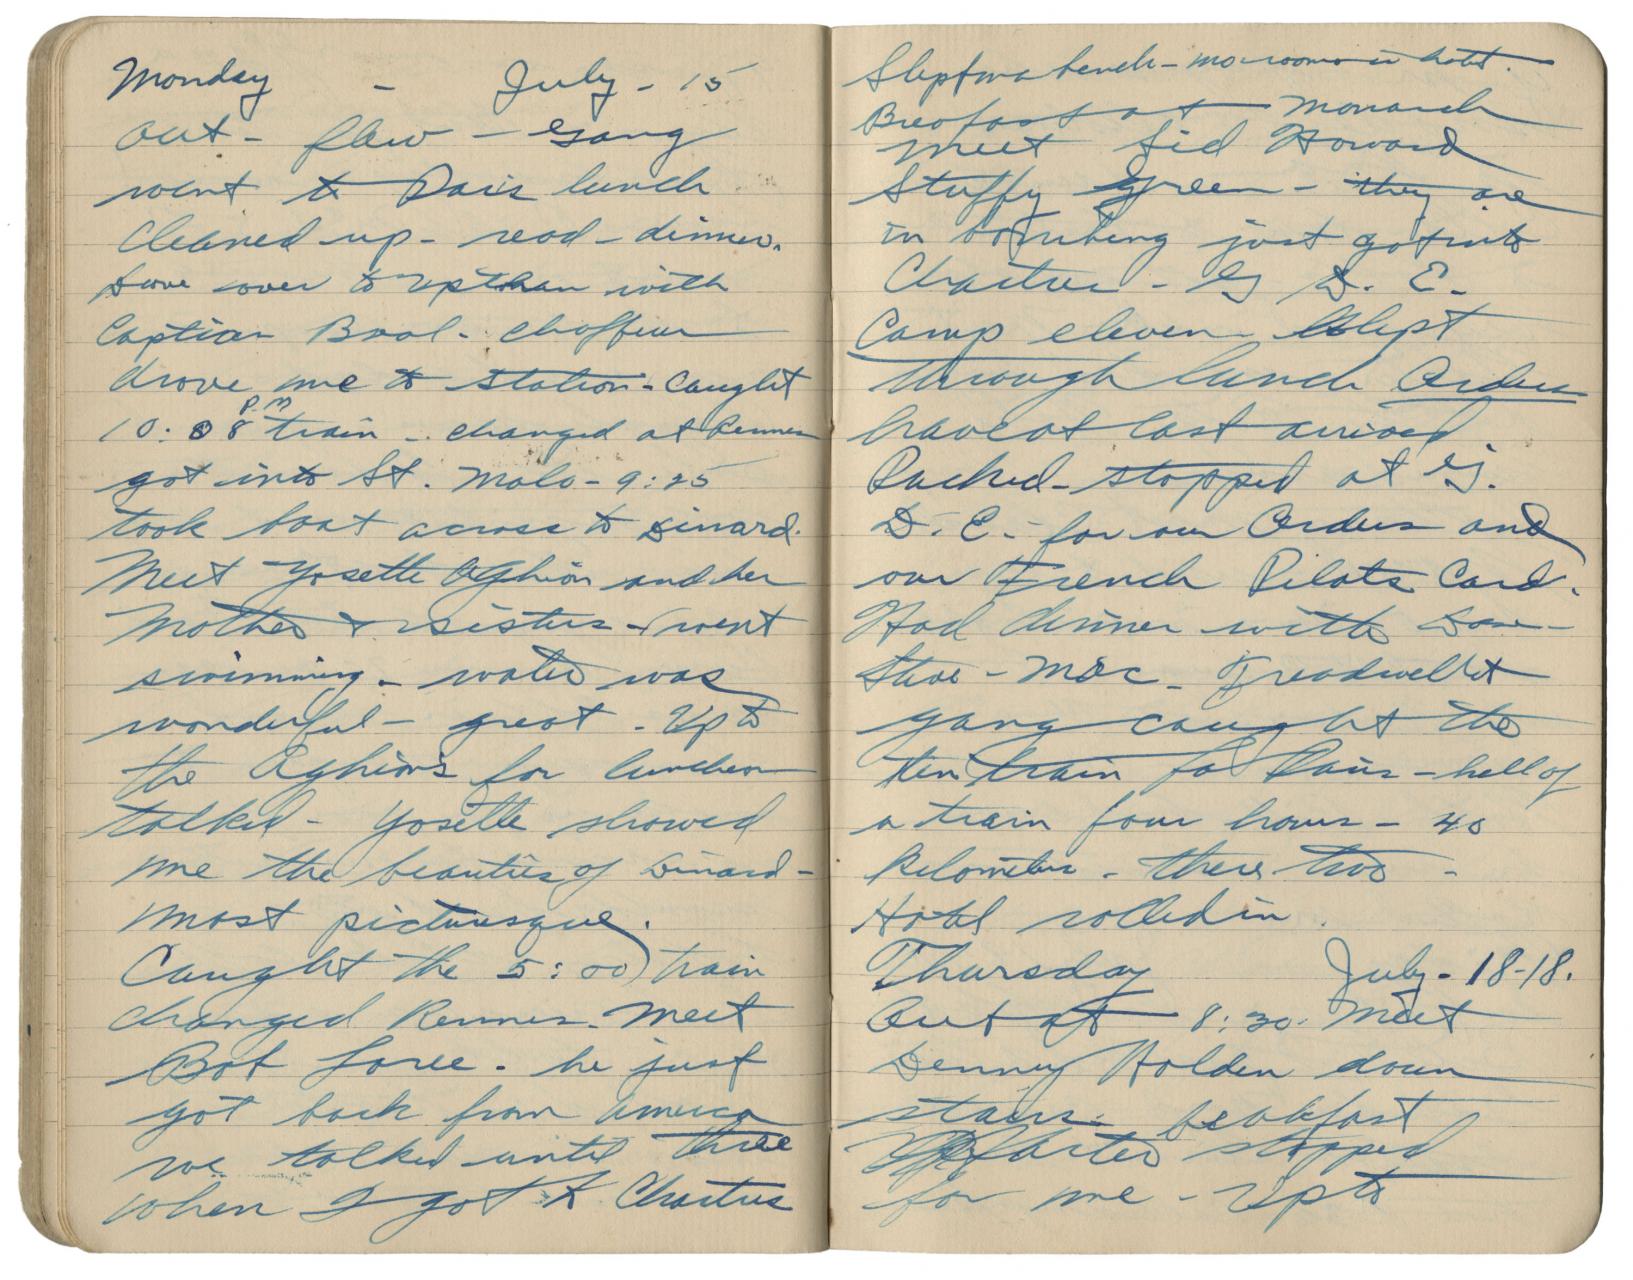 Monday - July - 15
Out - flew - gang
went to Paris lunch
Cleaned up - read - dinner.
Dove over to with
Captian Bool - choffeur
drove me to station - caught
10:08 P.M train - changed at Rennes
got into St. Malo - 9:25
took boat across to Dinard.
Meet Yosette Aghion and her
Mother & sisters - went
swimming - water was
wonderful - great - Up to
the Aghions for luncheon
talked - Yosette showed
me the beauties of Dinard -
most picturesque.
Caught the 5:00 train
changed Rennes. Meet
Bob Loree - he just
got back from America
we talked until three
when I got to Chartres
Slept on a bench - no rooms in hotel.
Breafast at Monarch
Meet Sid Howard
Stuffy Green - they are
in bombing just got into
Chartres - G. D. E.
Camp eleven slept
through lunch Orders
have at last arrived.
Packed - stopped at G.
D. E. - for our Orders and
our French Pilots Card.
Had dinner with Dave -
Steve - Mac - Treadwell et
gang caught the
ten train for Paris - hell of
a train four hours - 40
kilometers - there two -
Hotel rolled in
Thursday July - 18-18.
Out at 8:30. Meet
Denny Holden down
stairs. beakfast
Porter stopped
for me - Up to